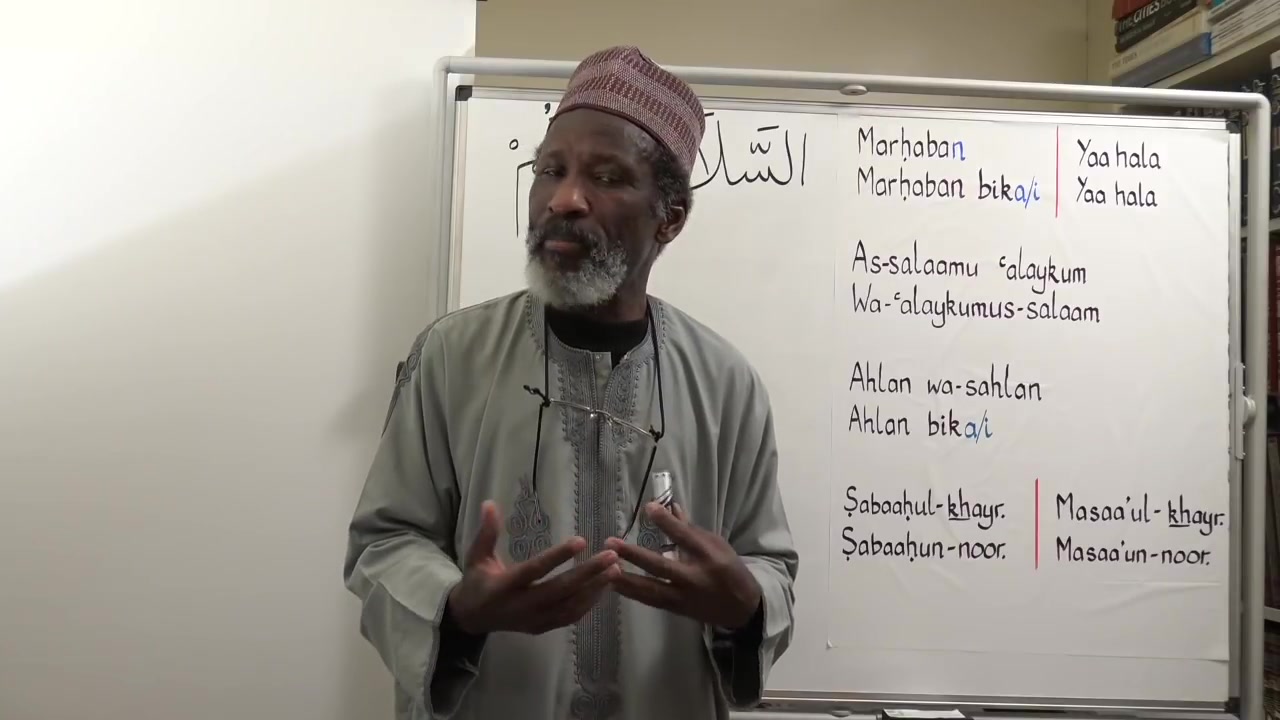 السَّلا
Marḥaban
Marḥaban bika/i
Yaa hala
Yaa hala
As-salaamu ʿalaykum
Wa-ʿalaykumus-salaam
Ahlan wa-sahlan
Ahlan bika/i
Ṣabaaḥul-khayr.
Ṣabaaḥun-noor.
Masaa'ul-khayr.
Masaa'un-noor.
THE CITIES